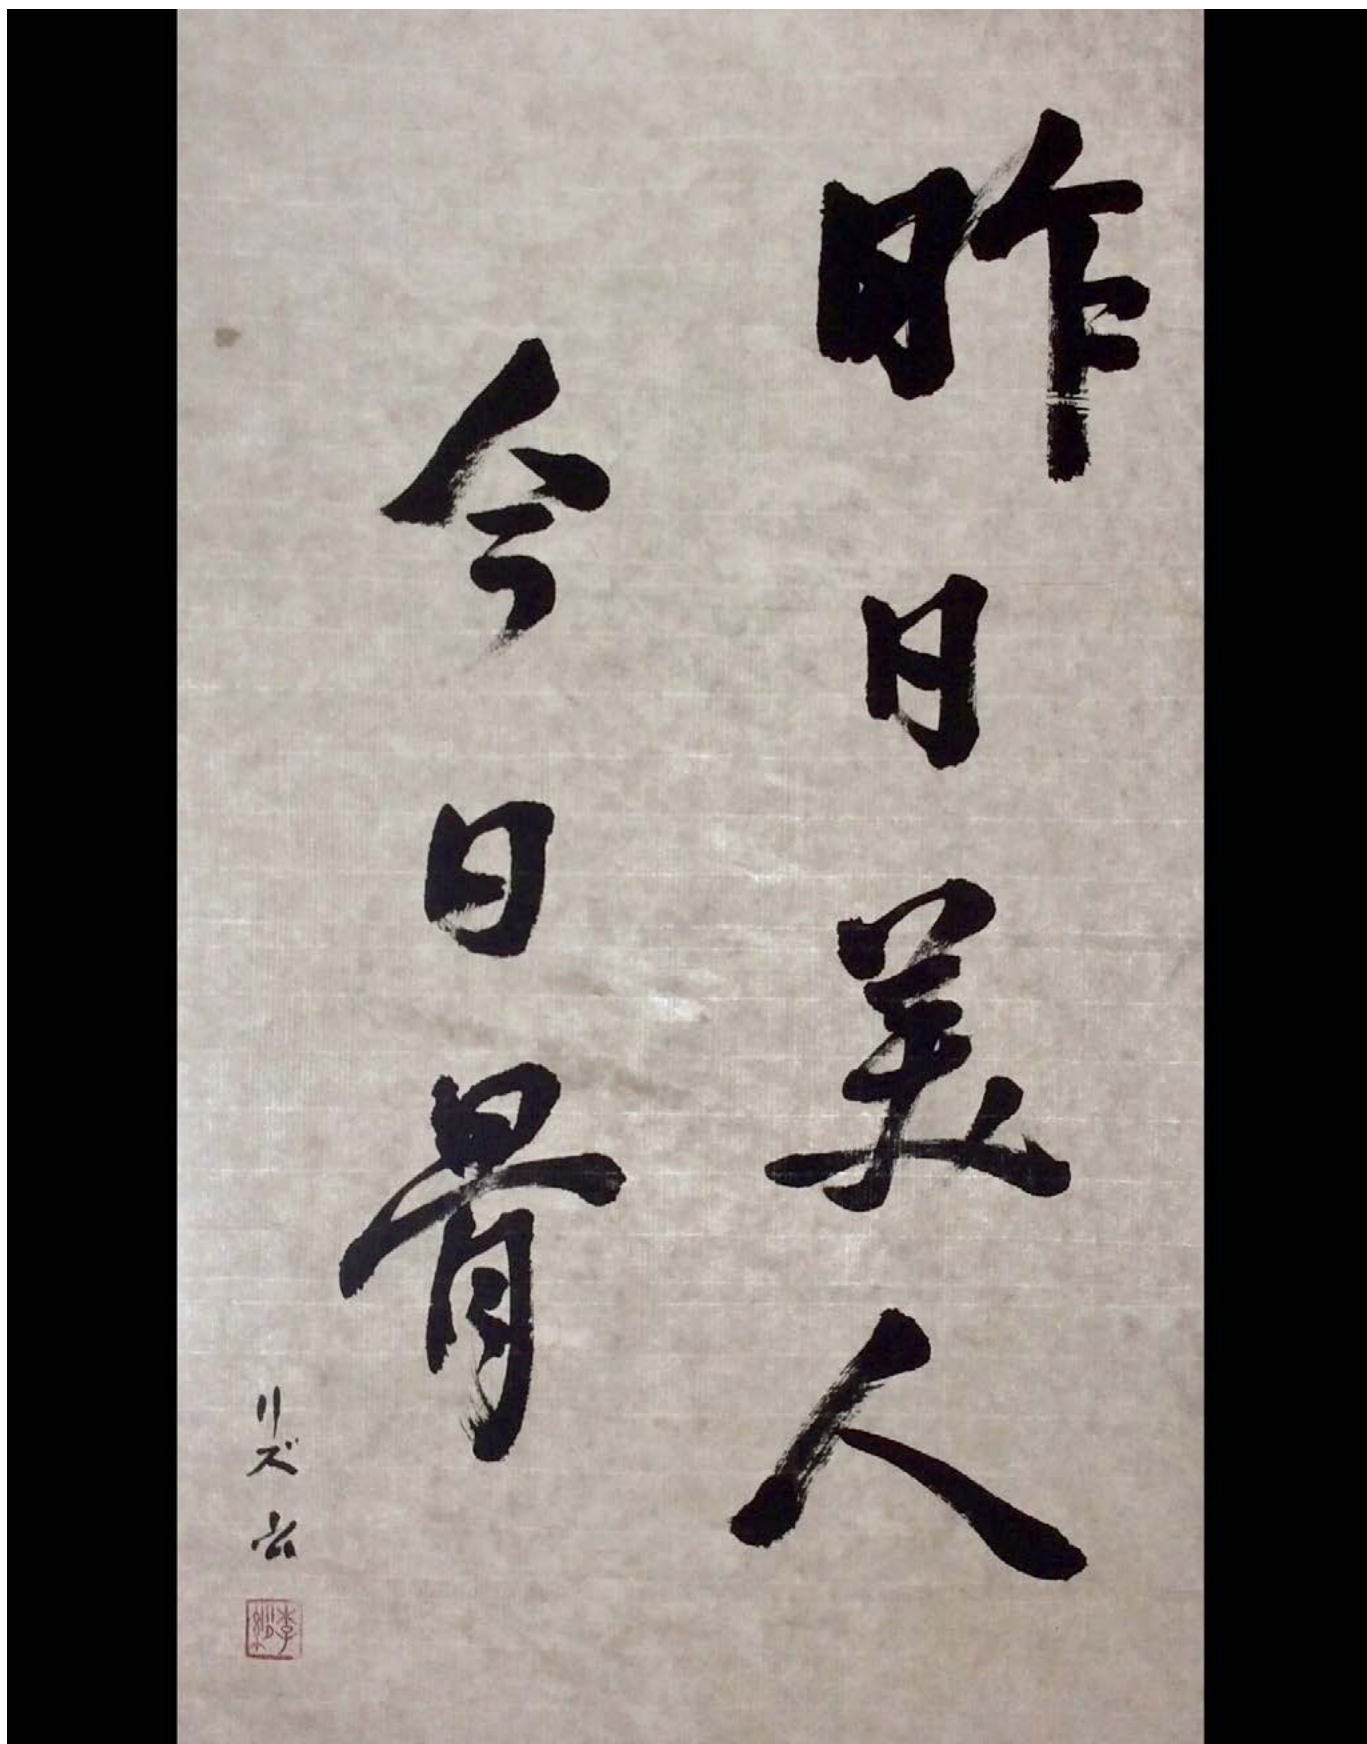 昨日美人
今日骨
リズ